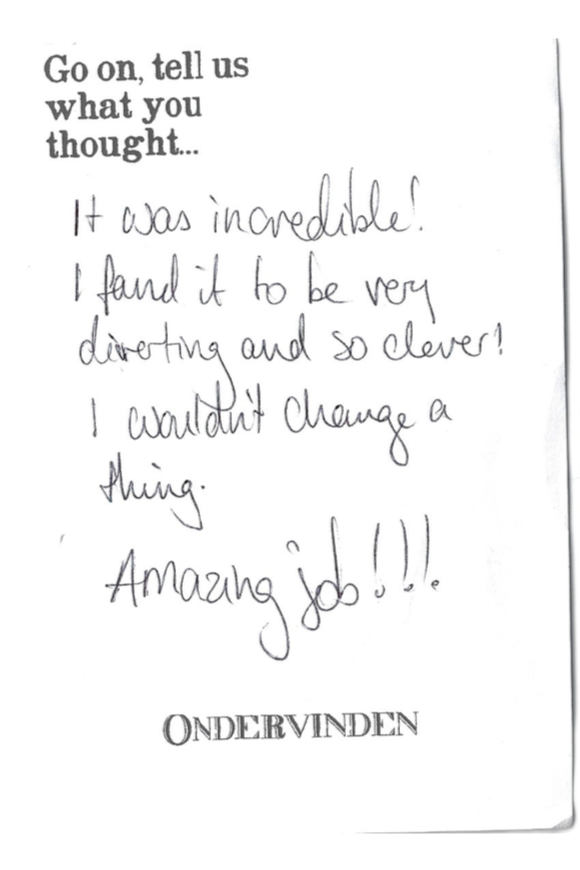 Go on, tell us
what you
thought...
It was incredible!
I found it to be very
diverting and so clever!
I wouldn't change a
thing.
Amazing job!!!
ONDERVINDEN